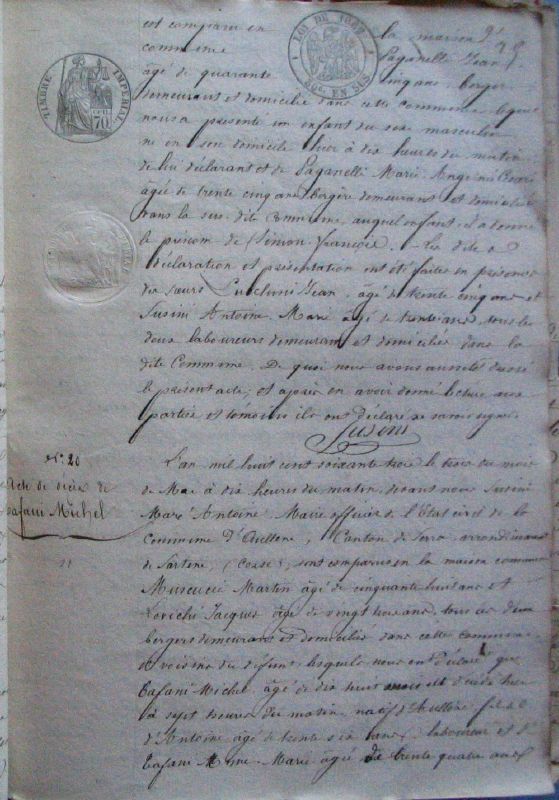 est comparu en la maison
commune Paganelli Jean
âgé de quarante cinq ans, berger
demeurant et domicilié dans cette commune, lequel
nous a présenté un enfant du sexe masculin
né en son domicile hier à dix heures du matin
de lui déclarant et de Paganelli Marie Angénie
âgée de trente cinq ans bergère demeurant et domiciliée
dans la sus dite Commune, auquel enfant il a donné
le prénom de Simon François. Les dites
déclaration et présentation ont été faites en présence
des sieurs Lucchini Jean, âgé de trente cinq ans et
Susini Antoine Marie âgé de trente ans, tous les
deux laboureurs demeurant et domiciliés dans la
dite Commune. De quoi nous avons aussitôt dressé
le présent acte, et après en avoir donné lecture aux
parties et témoins ils ont déclaré ne savoir signer
Susini
TIMBRE IMPÉRIAL
70
LOI DE 1862
EN SUS
N° 20
Acte de décès de
Tafani Michel
L'an mil huit cent soixante trois le trois du mois
de Mai à dix heures du matin, devant nous Susini
Marc Antoine Maire officier de l'État civil de la
Commune d'Aullène, Canton de Serra arrondissement
de Sartène, (Corse), sont comparus en la maison commune
Martin âgé de cinquante huit ans et
Jacques âgé de vingt trois ans, tous les deux
bergers demeurant et domiciliés dans cette commune,
et voisins du défunt, lesquels nous ont déclaré que
Tafani Michel, âgé de dix huit mois est décédé hier
à sept heures du matin, natif d'Aullène, fils
d'Antoine âgé de trente six ans laboureur et de
Tafani Anne Marie âgée de trente quatre ans